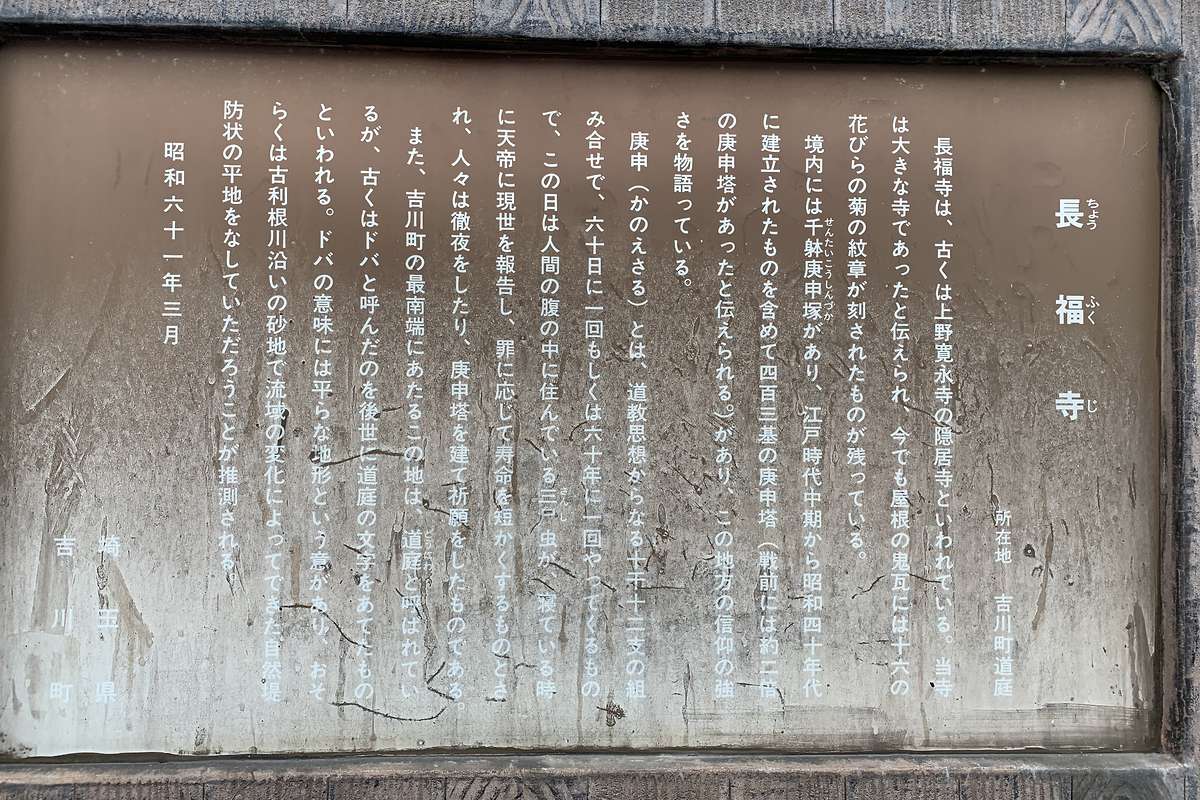 長福寺
ちょう ふく じ
所在地 吉川町道庭
長福寺は、古くは上野寛永寺の隠居寺といわれている。当寺
は大きな寺であったと伝えられ、今でも屋根の鬼瓦には十六の
花びらの菊の紋章が刻されたものが残っている。
境内には千躰庚申塚があり、江戸時代中期から昭和四十年代
せんたいこうしんづか
に建立されたものを含めて四百三基の庚申塔（戦前には約二倍
の庚申塔があったと伝えられる。）があり、この地方の信仰の強
さを物語っている。
庚申（かのえさる）とは、道教思想からなる十干十二支の組
み合せで、六十日に一回もしくは六十年に一回やってくるもの
で、この日は人間の腹の中に住んでいる三尸虫が、寝ている時
さんし
に天帝に現世を報告し、罪に応じて寿命を短かくするものとさ
れ、人々は徹夜をしたり、庚申塔を建て祈願をしたものである。
また、吉川町の最南端にあたるこの地は、道庭と呼ばれてい
どうにわ
るが、古くはドバと呼んだのを後世に道庭の文字をあてたもの
といわれる。ドバの意味には平らな地形という意があり、おそ
らくは古利根川沿いの砂地で流域の変化によってできた自然堤
防状の平地をなしていただろうことが推測される。
昭和六十一年三月
埼玉県
吉川町